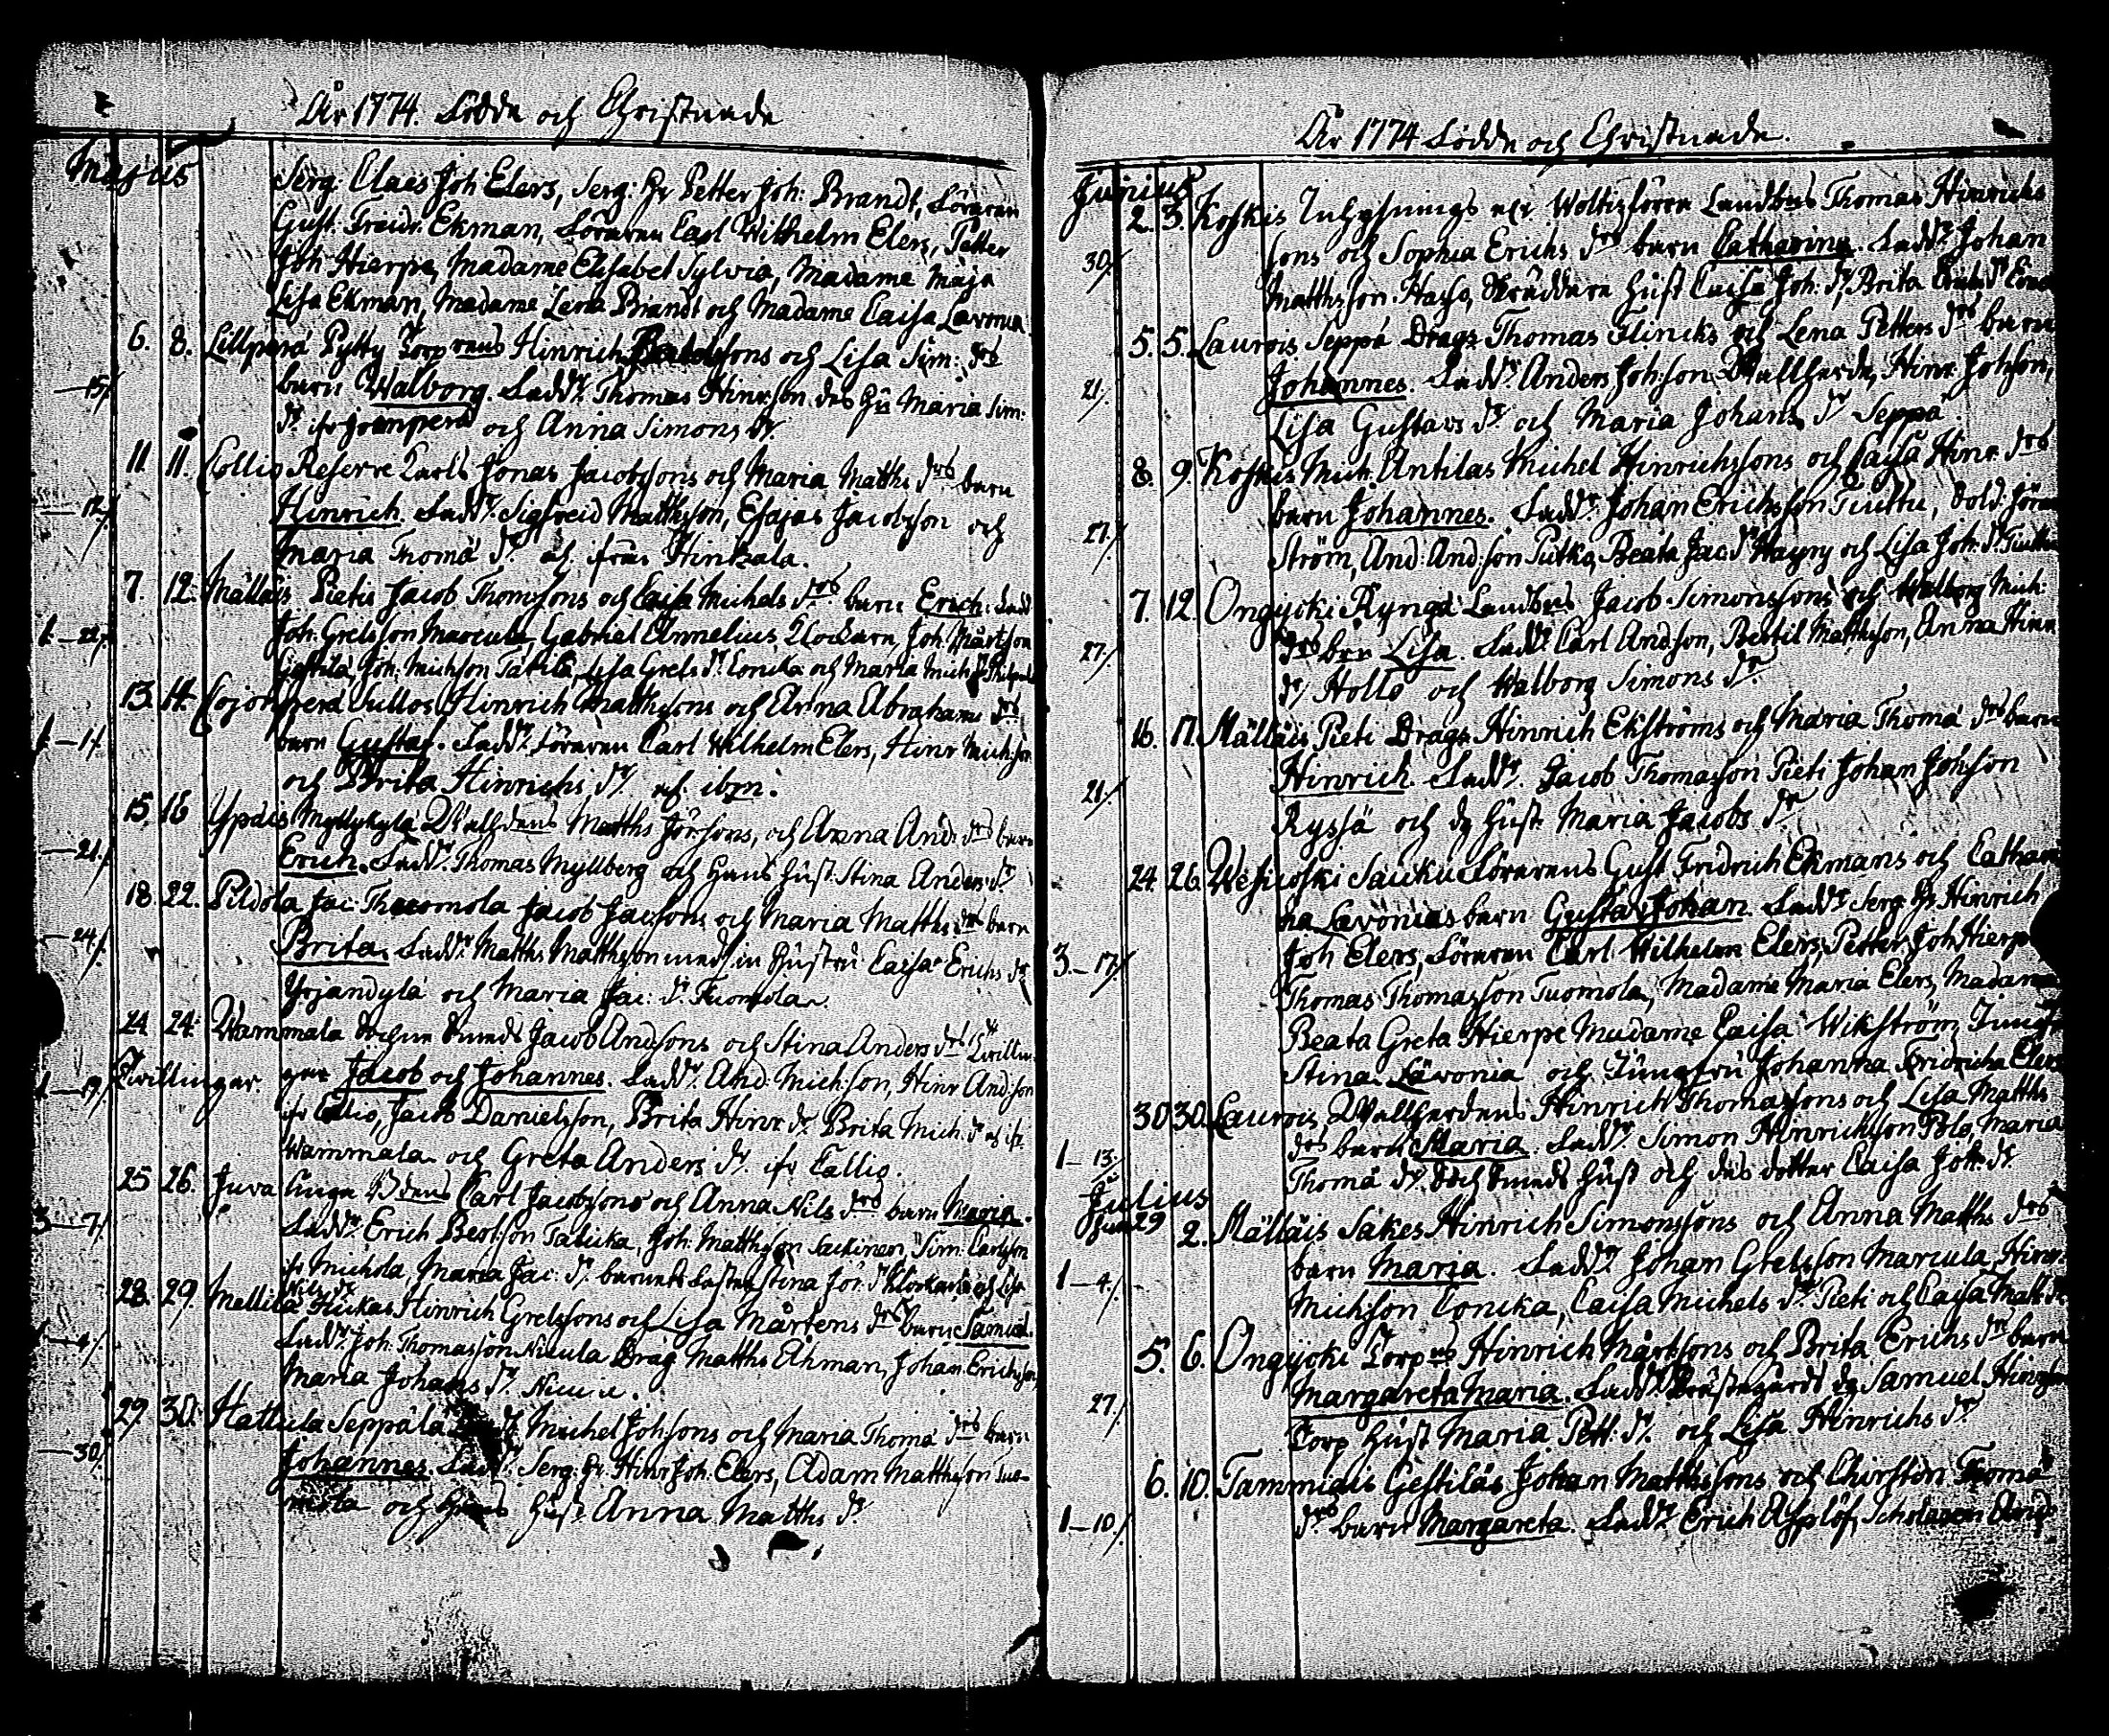 År 1774. Födde och Christnade
Majus
Serg: Claes Joh: Elers, Serg: Hr Petter Joh: Brandt, Föraren
Gust: Freidr: Ekman, Föraren Carl Wilhelm Elers, Petter
Joh Hierpe, Madame Elisabet Sylvia, Madame Maja
Lisa Ekman, Madame Lena Brandt och Madame Caisa Lavonia
6. 8. Lillperä Pytty Torp rens Hinrich sons och Lisa Sim: drs
15/ barn Walborg. Fadd: Thomas Hinrsson des hu Maria Sim:
dr och Anna Simons dr
11. 11. Collis Reserve Karls Jonas Jacobssons och Maria Matths drs barn
12/ Hinrich Fadd: Sigfreid Matthsson, Esajas Jacobsson och
Maria Thomä dr ifrån Hinkala.
7. 12. Mältäis Pieti Jacob Thomssons och Caisa Michels drs barn Erich. Fadd
1—22/ Joh: Grelsson Marcula, Gabriel Annelius, Klockarn, Joh: Mårtsson
Joh: Michsson Lisa Grels dr Conika och Maria Mich: dr
13. 14. Cojonperä Sullos Hinrich Matthssons och Anna Abrahams drs
1—1/ barn Gustaf. Fadd: Föraren Carl Wilhelm Elers, Hinr Michsson
och Brita Hinrichs dr ibm.
15. 16 Ypäis Myllykylä Matths Jörsons, och Anna And: drs barn
21/ Erich. Fadd: Thomas Myllberg och hans hust: Stina Anders dr
18. 22. Pildola Jac: Thuomola Jacob Jacsons och Maria Matths drs barn
24/ Brita. Fadd: Matths Matthsson med sin hustru Caisa Erichs dr
Yrjändylä och Maria Jac: dr Tuomola.
24. 24. Wammala Jacob Andsons och Stina Anders drs Twillin
1—19/ Twillingar gar Jacob och Johannes. Fadd: And: Michsson, Hinr Andsson
ifr Callio, Jacob Danielsson, Brita Hinr dr Brita Mich: dr ifr
Wammala och Greta Anders dr ifr Callio.
25 26. Juva Carl Jacobssons och Anna Nils drs barn Maria.
3—7/ Fadd: Erich Bertsson Johs: Matthsson Sackinen, Sim: Carlsson
fr Michola, Maria Jac: dr Stina Jör: dr och Lisa
Nils dr
28. 29. Mellilä Huckas Hinrich Grelssons och Lisa Mårtens drs barn Samuel.
1—4/ Fadd: Joh: Thomasson Nicula Drag Matths Åhman, Johan Erichsson,
Maria Johans dr
29. 30. Hattula Seppälä Michel Johssons och Maria Thomä drs barn
30/ Johannes. Fadd: Serg: Hr Hinr Joh: Elers, Adam Matthsson Tuo-
mola och hans hust Anna Matths dr
År 1774 Födde och Christnade.
Junius
2. 3. Koskis Thomas Hinrichs
30/ sons och Sophia Erichs drs barn Catharina. Fadd: Johan
Matthsson Hasso, Skräddare hust Caisa Joh: dr, Brita
5. 5. Laurois Seppä Drag: Thomas Flincks och Lena Petters drs barn
21/ Johannes. Fadd: Anders Johsson Hinr: Johsson,
Lisa Gustavs dr och Maria Johans dr Seppä.
8. 9. Koskis Mich: Antilas Michel Hinrichssons och Caisa Hinr drs
27/ barn Johannes. Fadd: Johan Erichsson Tiuttu, Sold: Jöran
Ström, And: And:son Putko, Beata Jac: dr Hayry och Lisa Joh: dr
7. 12. Ongijoki Ryngä Landbns Jacob Simonssons och Walborg Mich:
27/ drs brn Lisa. Fadd: Carl Andsson, Bertil Matthsson, Anna Hinr
dr Hollo och Walborg Simons dr
16. 17. Mältäis Pieti Drag: Hinrich Ekströms och Maria Thomä drs barn
21/ Hinrich. Fadd: Jacob Thomasson Pieti Johan Johsson
Ryssä och ds hust: Maria Jacobs dr
24. 26. Wesicoski Sauku Förarens Gust Fridrich Ekmans och Cathari
na Lavonias barn Gustav Johan. Fadd: Serg: Hr Hinrich
3—17/ Joh Elers, Föraren Carl Wilhelm Elers, Petter Joh Hierpe
Thomas Thomasson Tuomola, Madame Maria Elers, Madame
Beata Greta Hierpe Madame Caisa Wikström Jungfr
Stina Lavonia och Jungfru Johanna Fridricha Elers
30 30. Laurois Hinrich Thomassons och Lisa Matths
1—13. drs barn Maria. Fadd: Simon Hinrichsson Polo, Maria
Thomä dr hust och des dotter Caisa Joh: dr
Julius
Jun 29 2. Mältäis Säkes Hinrich Simonssons och Anna Matths drs
1—4/ barn Maria. Fadd: Johan Grelsson Marcula, Hinr:
Michsson Conika, Caisa Michels dr Pieti och Caisa Matt: dr
5. 6. Ongijoki Torp ns Hinrich Mårtssons och Brita Erichs drs barn
27/ Margareta Maria. Fadd: Samuel
Torp hust Maria Pett: dr och Lisa Hinrichs dr
6. 10. Tammiais Gestiläs Johan Matthssons och Christin Thomä
1—10/ drs barn Margareta. Fadd: Erich Asplöf,